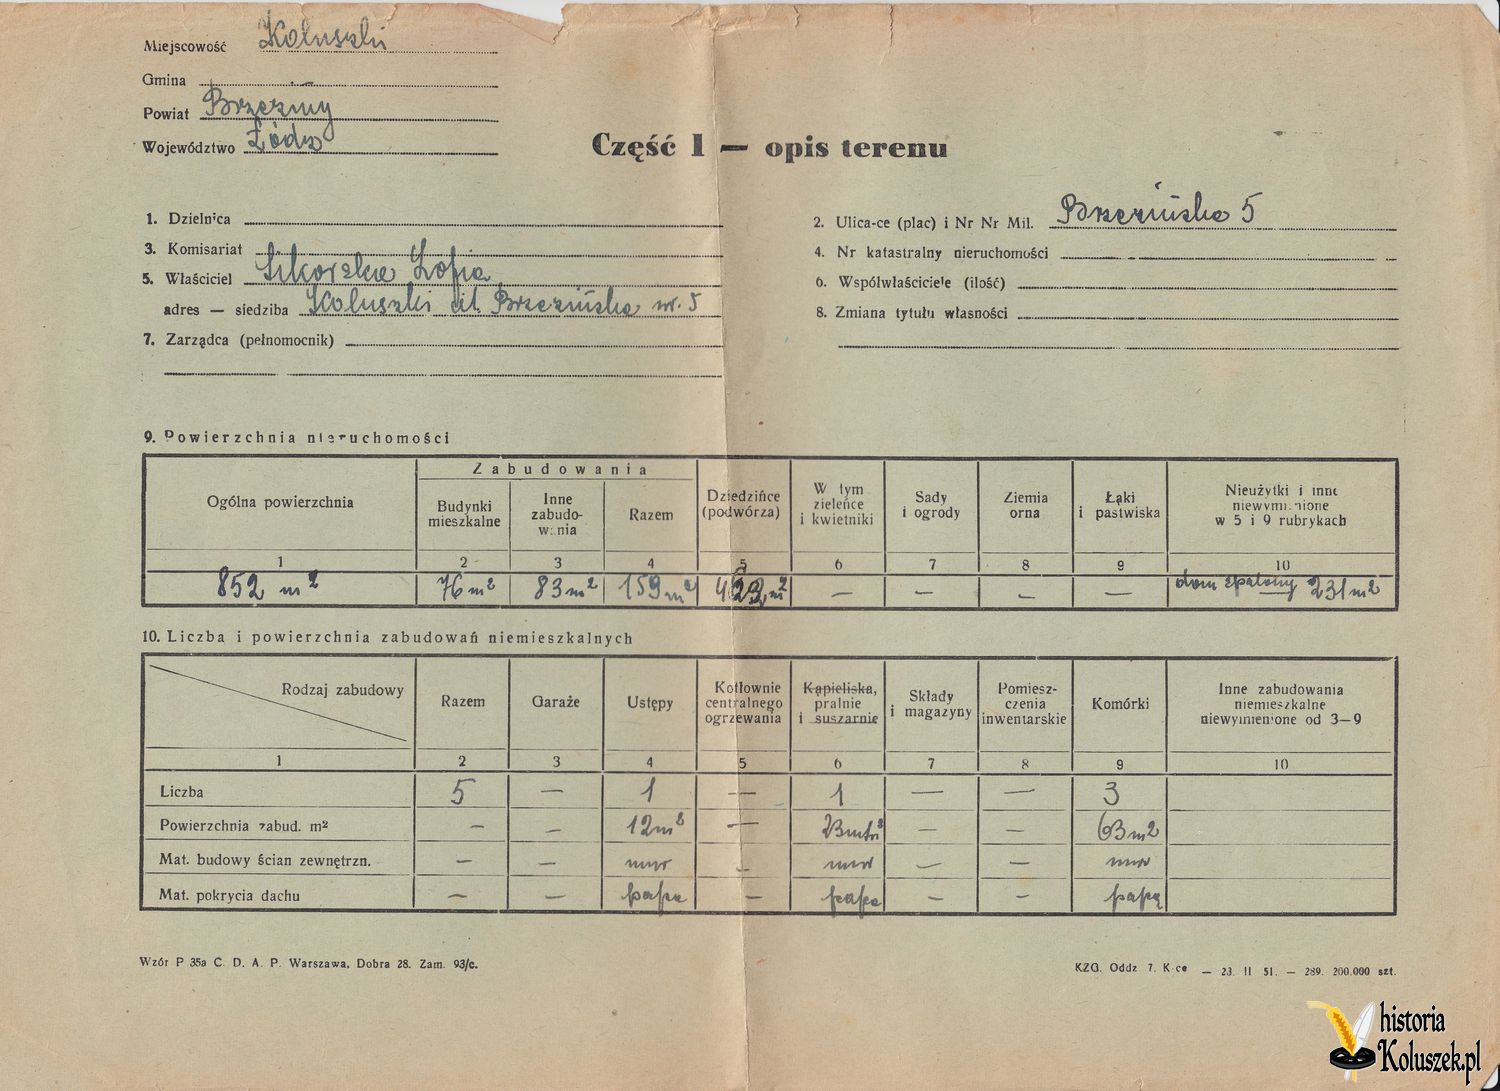 Miejscowość Koluszki
Gmina —
Powiat Brzeziny
Województwo Łódź
Część I — opis terenu
1. Dzielnica
2. Ulica-ce (plac) i Nr Nr Mil. Brzezińska 5
3. Komisariat
4. Nr katastralny nieruchomości
5. Właściciel Sikorska Zofia
6. Współwłaściciele (ilość)
adres — siedziba Koluszki ul. Brzezińska nr. 5
8. Zmiana tytułu własności
7. Zarządca (pełnomocnik)
9. Powierzchnia nieruchomości
Zabudowania
Ogólna powierzchnia
Budynki mieszkalne
Inne zabudo-wania
Razem
Dziedzińce (podwórza)
W tym zieleńce i kwietniki
Sady i ogrody
Ziemia orna
Łąki i pastwiska
Nieużytki i inne niewymienione w 5 i 9 rubrykach
1 2 3 4 5 6 7 8 9 10
852 m² 76 m² 83 m² 159 m² m² — — — — dom spalony 231 m²
10. Liczba i powierzchnia zabudowań niemieszkalnych
Rodzaj zabudowy
Razem
Garaże
Ustępy
Kotłownie centralnego ogrzewania
Kąpieliska, pralnie i suszarnie
Składy i magazyny
Pomiesz-czenia inwentarskie
Komórki
Inne zabudowania niemieszkalne niewymienione od 3—9
1 2 3 4 5 6 7 8 9 10
Liczba 5 — 1 — 1 — — 3
Powierzchnia zabud. m² — — 12 m² — — — 63 m²
Mat. budowy ścian zewnętrzn. — — mur — mur — — mur
Mat. pokrycia dachu — — papa — papa — — papą
Wzór P 35a C. D. A. P. Warszawa, Dobra 28. Zam. 93/c.
KZG. Oddz 7. K-ce — 23. II 51. — 289. 200.000 szt.
historia
Koluszek.pl